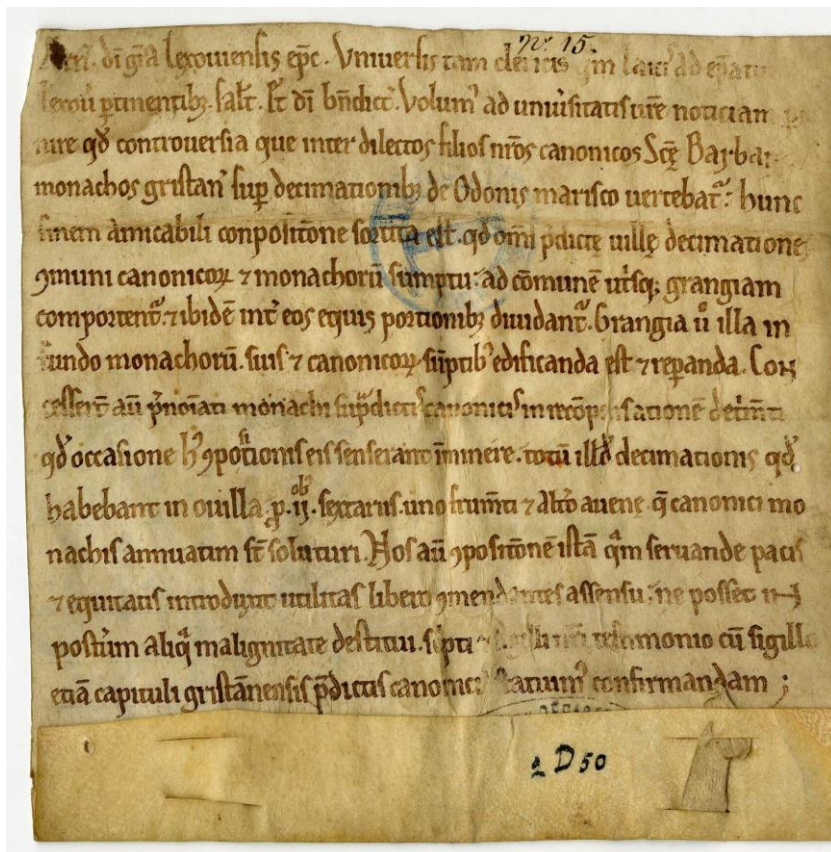 Nº. 15.
dī grā lexouiensis ep̄c. Vniuersis tam clericis qm̄ laicis ad ep̄atū
lexoū ꝑtinentibꝫ. sał̄t. ⁊ dī bn̄dicc̄. Volum᷒ ad uniu͛sitatis ur̄e noticiam
nire qd̄ controuersia que inter dilectos filios nr̄os canonicos Sc̄ę Barbar
monachos gristan̄ suꝑ decimationibꝫ de Odonis marisco uertebat᷑. hunc
finem amicabili conpositōne sortita est. qd̄ om̄i p̄dictę uillę decimatione
ꝯmuni canonicoꝝ ⁊ monachorū sumptu. ad cōmunē ut͛sqꝫ grangiam
comportent᷑. ⁊ ibidē int͛ eos equis portionibꝫ diuidant᷑. Grangia ů illa in
fundo monachorū. suis ⁊ canonicoꝝ sūptibꝫ edificanda est ⁊ reꝑanda. Con
cesser̄t aū p̄noīati monachi sup͛dictis canonicis in recōpensationē det͛m̄ti
qd̄ occasione h᷒ ꝯpositionis eis senserant īminere. totū illd̄ decimationis qd̄
habebant in ouilla. ꝓ. ij. obꝫ. sextariis. uno frum̄ti ⁊ alt͛o auene. q̄ canonici mo
nachis annuatim st̄ soluturi. Nos aū ꝯpositōnē istā qm̄ seruande pacis
⁊ equitatis introduxit utilitas libero ꝯmendantes assensu. ne posset in
post͛um aliq̄ malignitate destitui. sc͛pti ⁊ sigilli nr̄i testimonio cū sigillo
etiā capituli gristānensis p̄dictis canonicis statuim᷒ confirmandam ;
2 D 50